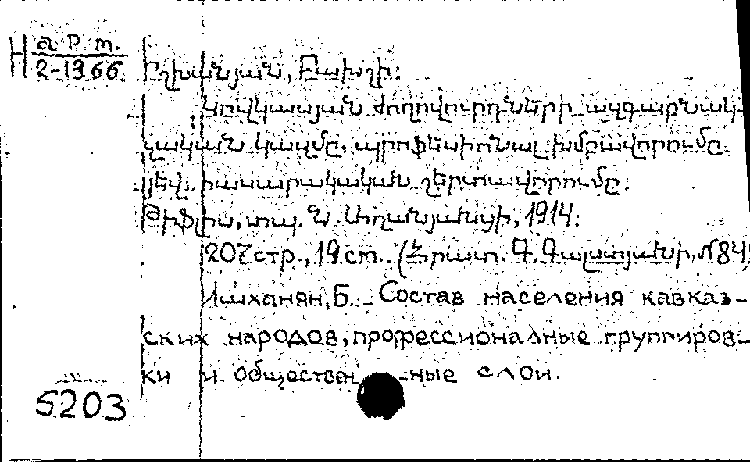 H арт.
2-1966. Իշխանյան, Բախշի:
Կովկասյան ժողովուրդների ազգաբնակ-
չական կազմը, պրոֆեսիոնալ խմբավորումը
յեվ հասարակական շերտավորումը.
Թիֆլիս, տպ. Ն. Աղանյանցի, 1914:
207 стр., 19 см. (Հրատ. Գ. Գալստյանի, №84)
Ишханян, Б. Состав населения кавказ-
ских народов, профессиональные группиров-
ки и обществен-ные слои.
5203